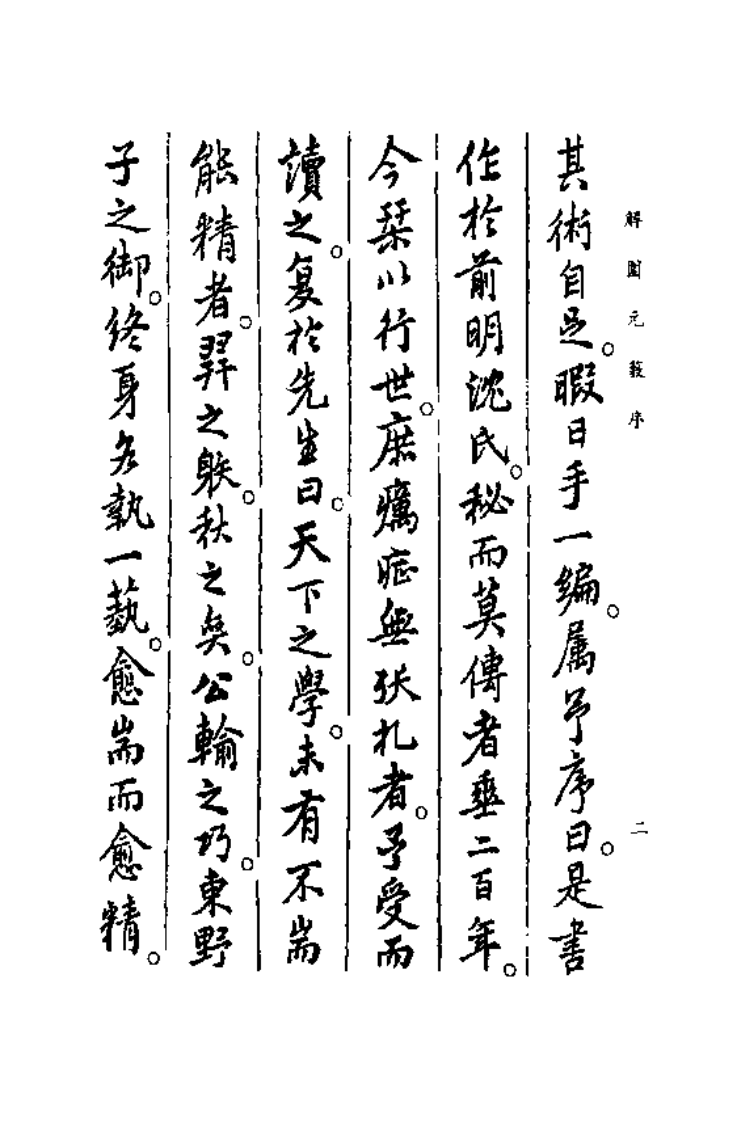 解圍元藪序
二
其術自足。暇日手一编。属予序曰。是書
作於前明沈氏。秘而莫傳者垂二百年。
今栞以行世。庶癘症無殀札者。予受而
讀之。复於先生曰。天下之學。未有不耑
能精者。羿之躲。秋之奕。公輸之巧。東野
子之御。终身各執一藝。愈耑而愈精。